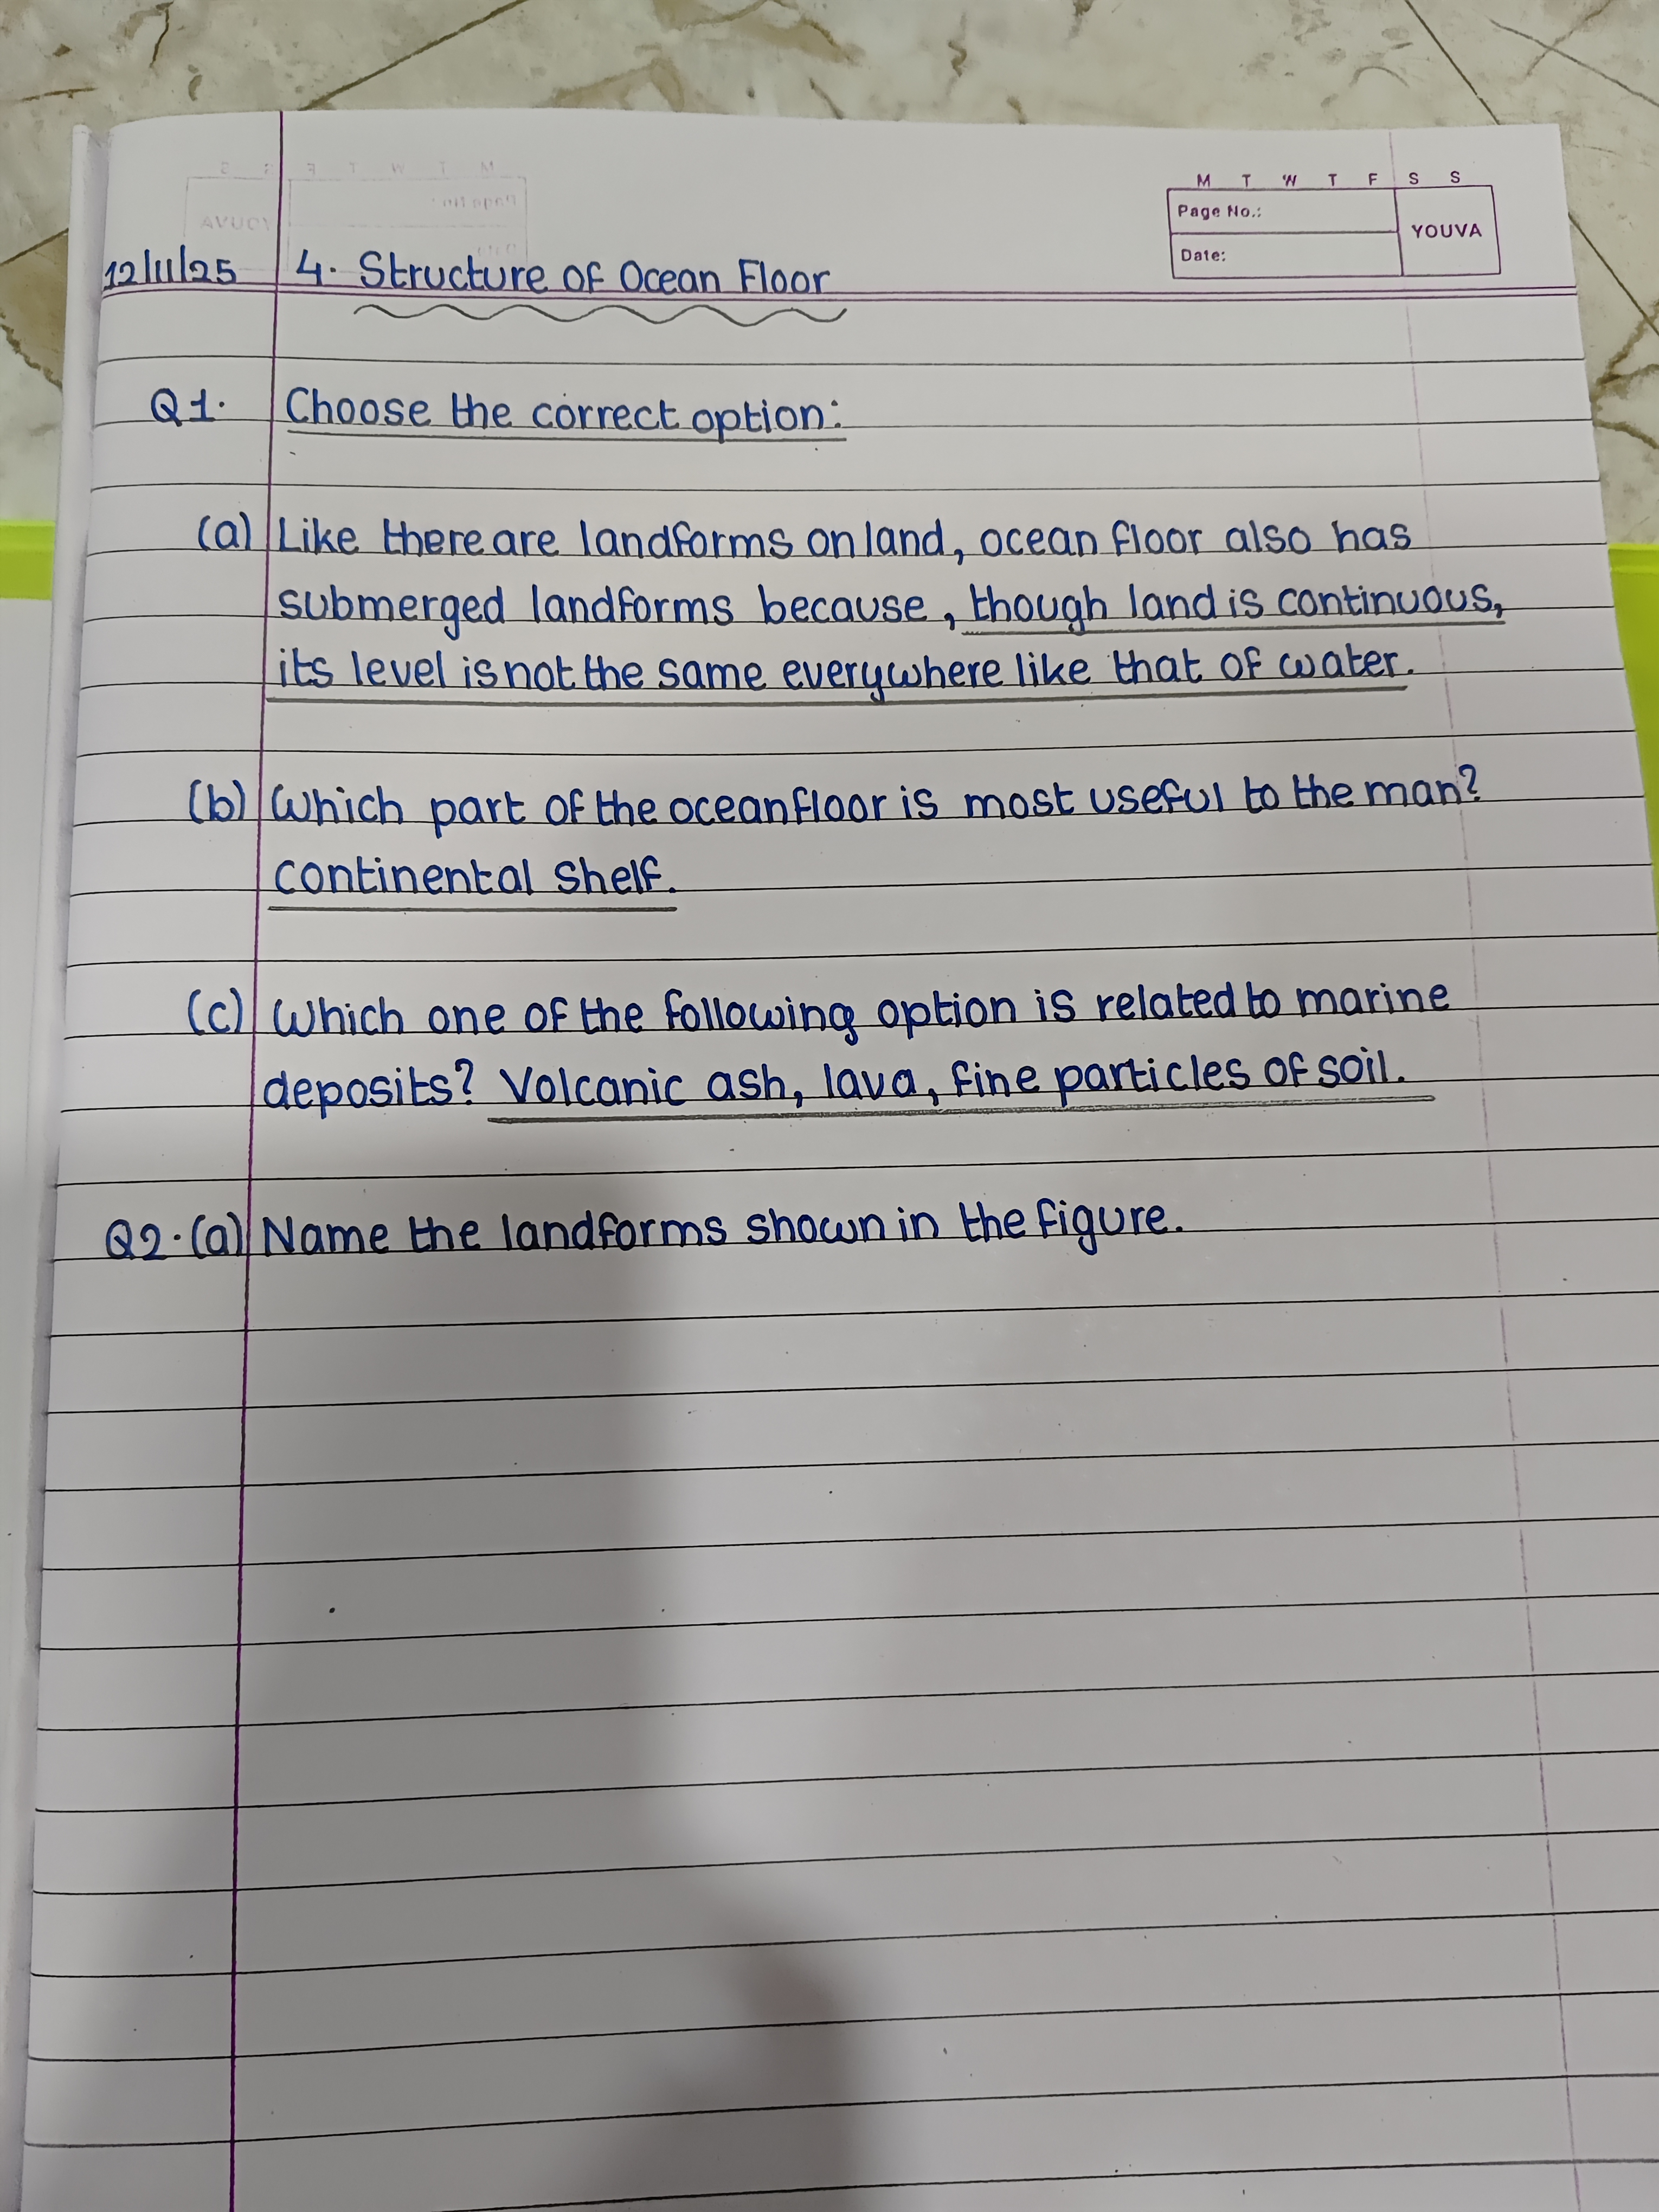 M T W T F S S
Page No.:
YOUVA
Date:
12/11/25 4. Structure of Ocean Floor
Q1. Choose the correct option:
(a) Like there are landforms on land, ocean floor also has
submerged landforms because, though land is continuous,
its level is not the same everywhere like that of water.
(b) Which part of the ocean floor is most useful to the man?
continental shelf.
(c) Which one of the following option is related to marine
deposits? Volcanic ash, lava, fine particles of soil.
Q2. (a) Name the landforms shown in the figure.